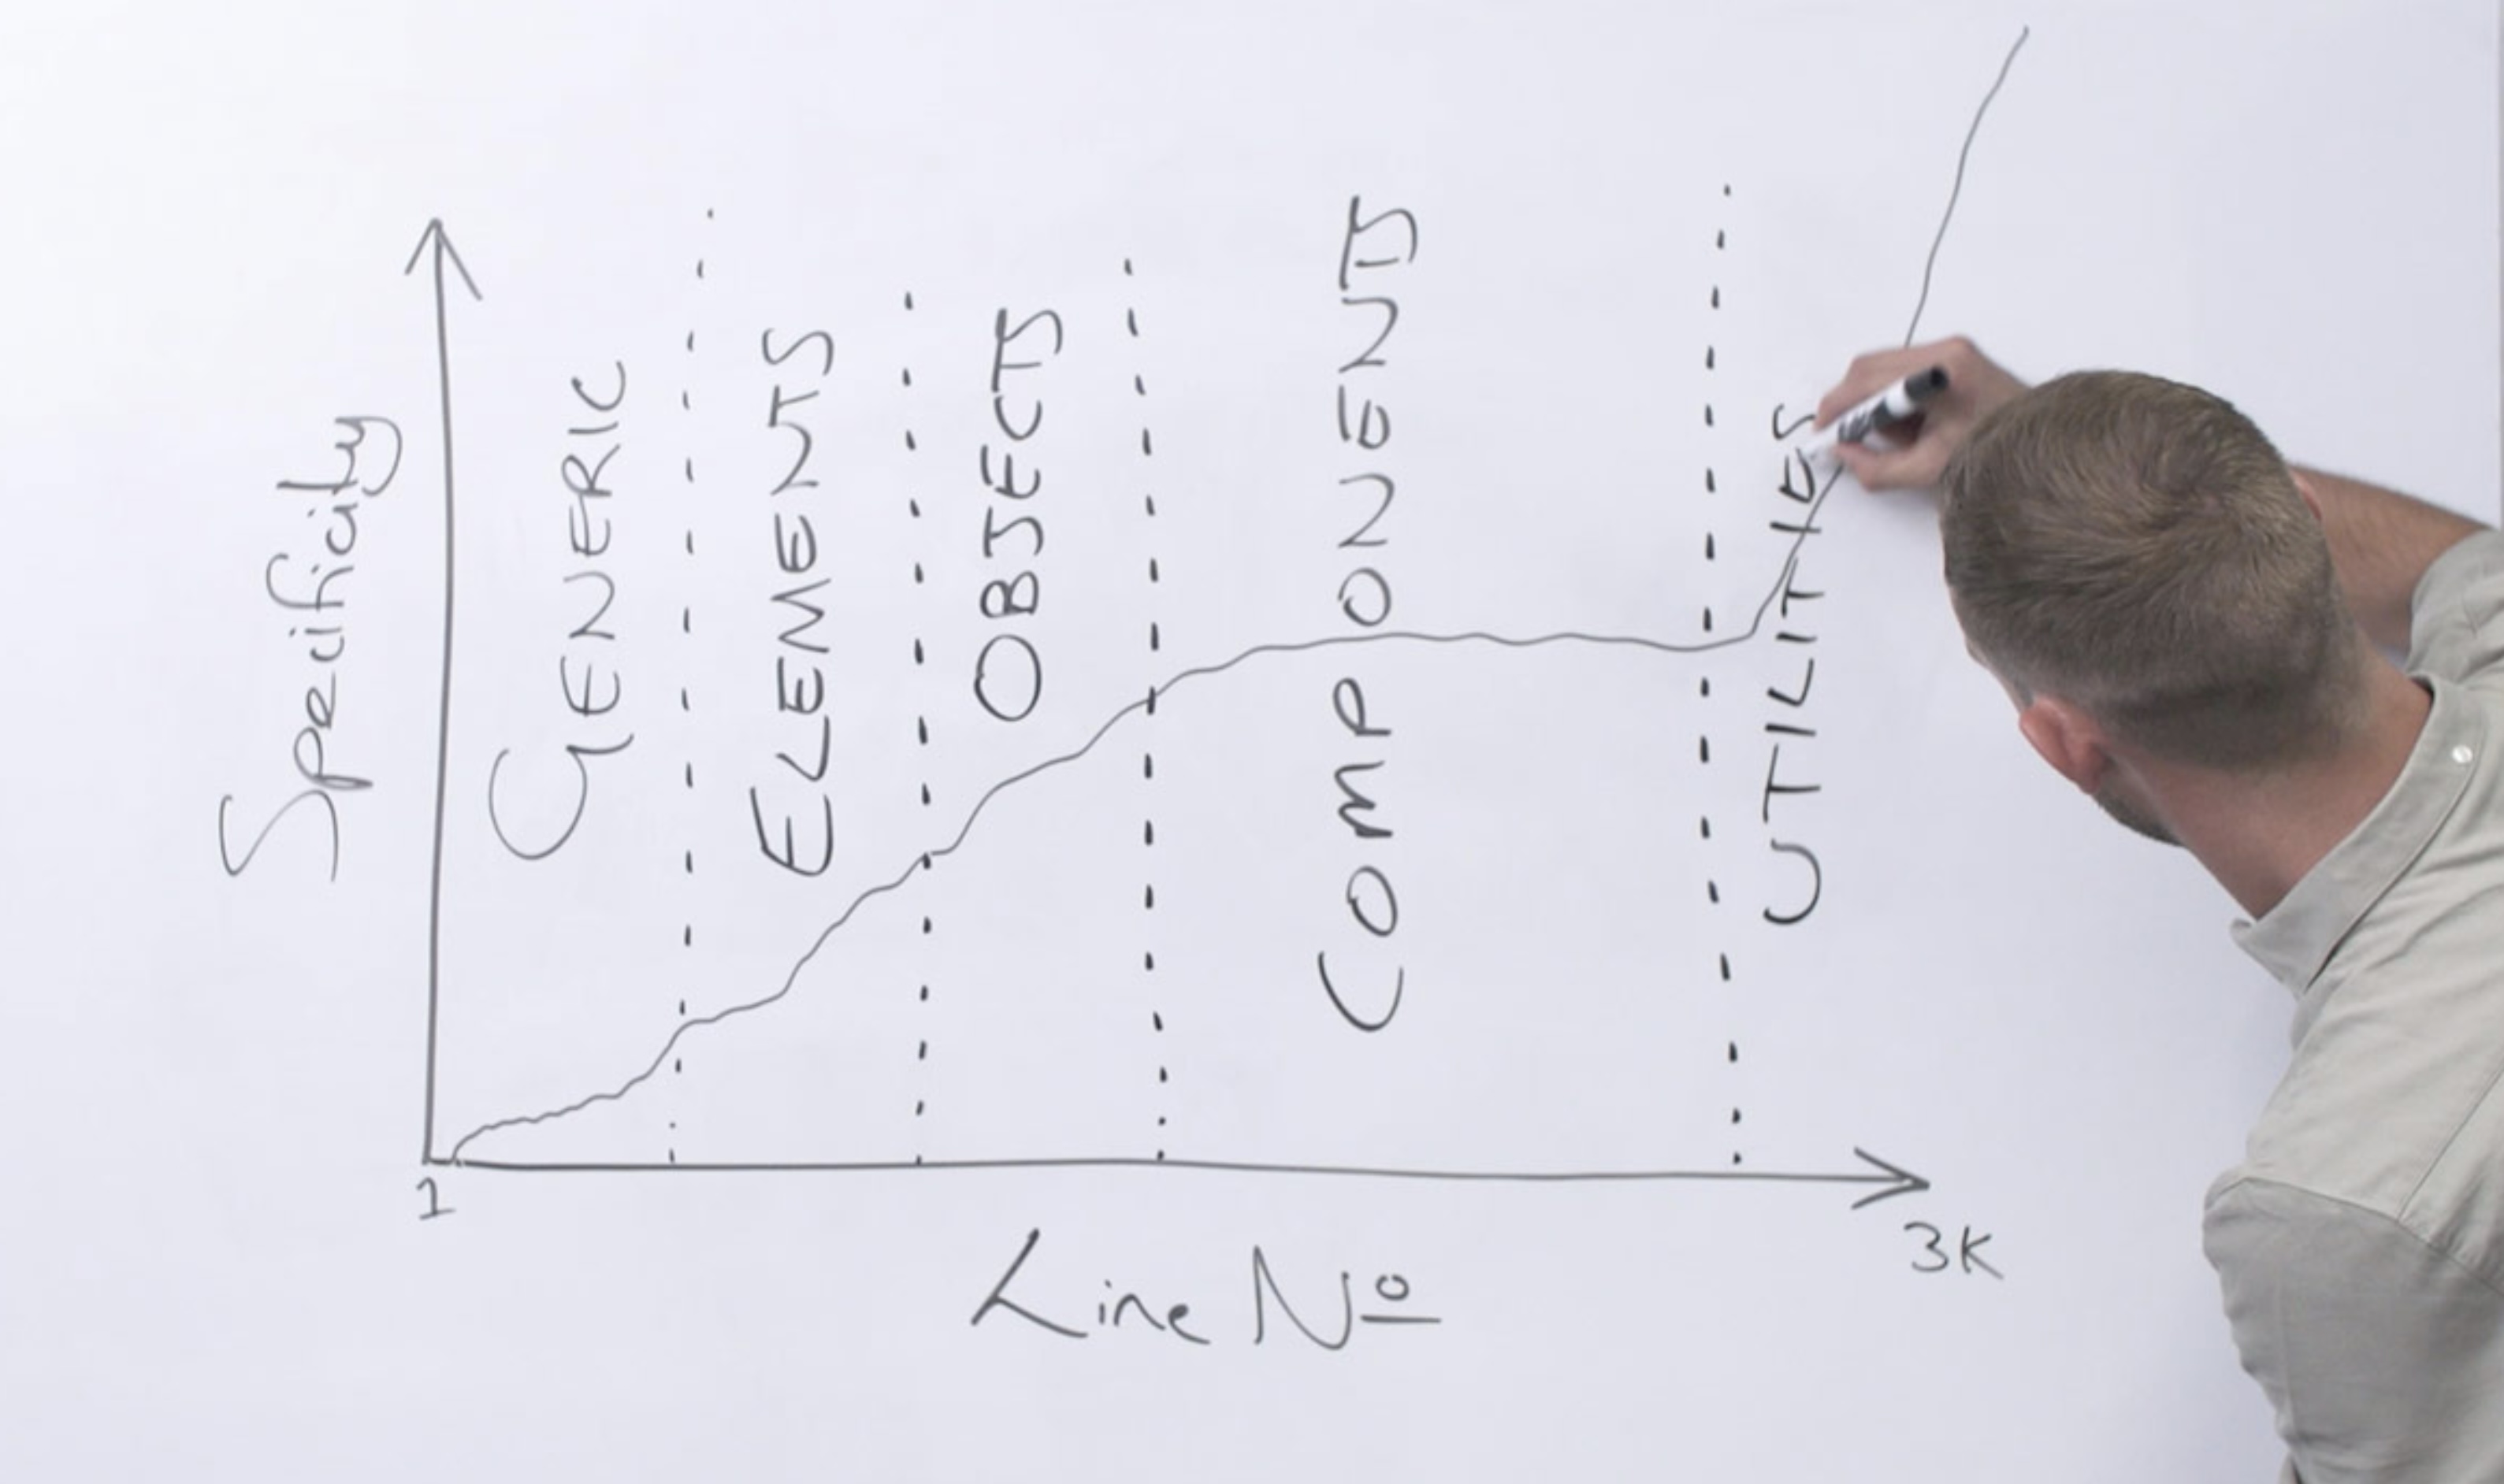 Specificity
GENERIC
ELEMENTS
OBJECTS
COMPONENTS
UTILITIES
1
3K
Line Nº